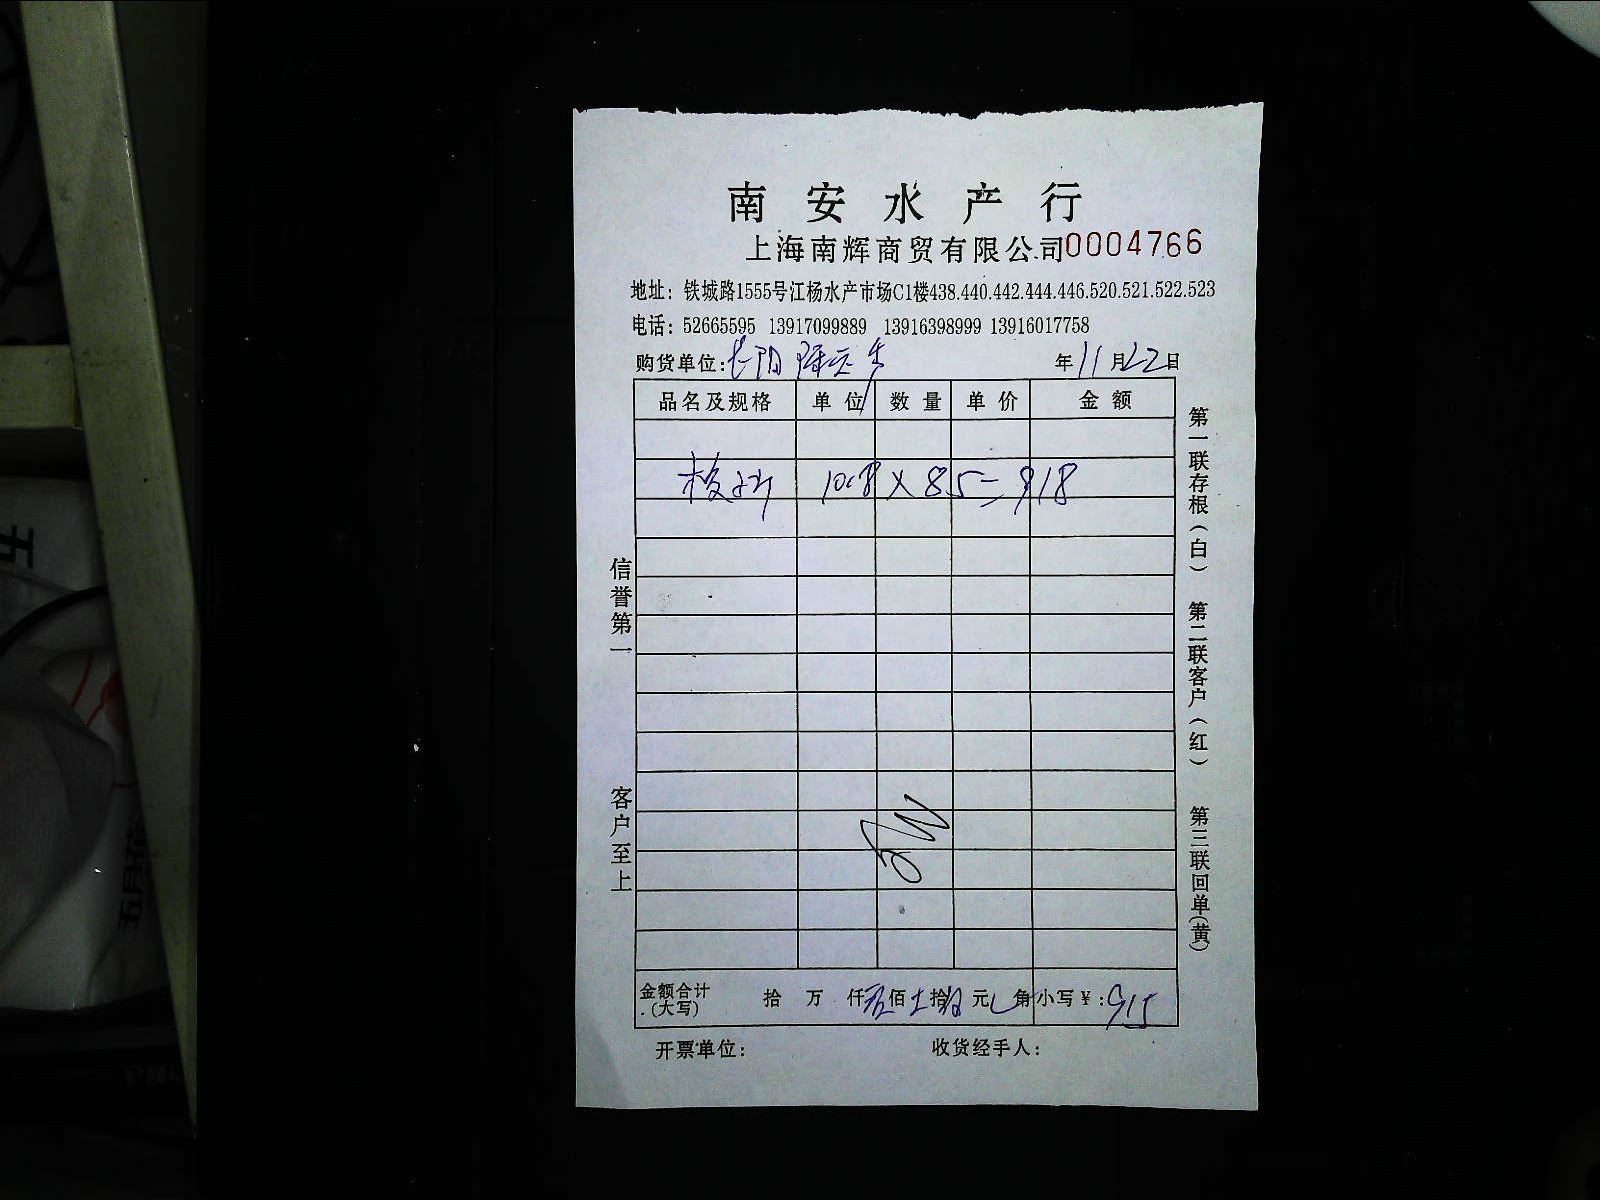 南安水产行
上海南辉商贸有限公司0004766
地址：铁城路1555号江杨水产市场C1楼438.440.442.444.446.520.521.522.523
电话：52665595 13917099889 13916398999 13916017758
购货单位：长阳 年11月22日
品名及规格 单位 数量 单价 金额
10.8 X 85=918
信誉第一
客户至上
第一联存根（白） 第二联客户（红） 第三联回单（黄）
金额合计（大写） 拾 万 仟 佰 拾 元 角 小写￥：915
开票单位： 收货经手人：
五月花